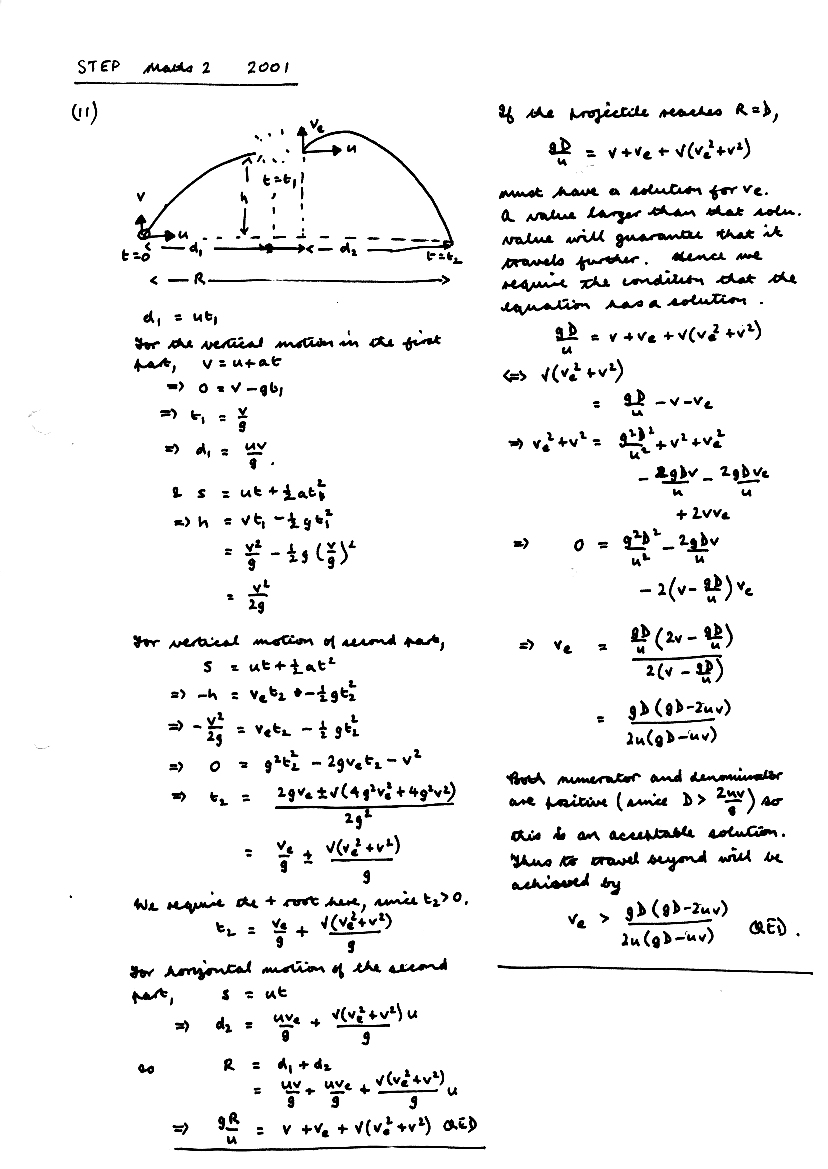 STEP Maths 2 2001
(11)
v_e
u
t=t₁
h
v
u
t=0
d₁
d₂
t=t₂
R
d₁ = ut₁
For the vertical motion in the first
part, v = u+at
⇒ 0 = v - gt₁
⇒ t₁ = v/g
⇒ d₁ = uv/g .
& s = ut + ½at₁²
⇒ h = vt₁ - ½gt₁²
= v²/g - ½g(v/g)²
= v²/2g
For vertical motion of second part,
s = ut + ½at²
⇒ -h = v_e t₂ - ½gt₂²
⇒ -v²/2g = v_e t₂ - ½gt₂²
⇒ 0 = g²t₂² - 2gv_e t₂ - v²
⇒ t₂ = (2gv_e ± √(4g²v_e² + 4g²v²))/2g²
= v_e/g ± √(v_e²+v²)/g
We require the + root here, since t₂>0.
t₂ = v_e/g + √(v_e²+v²)/g
For horizontal motion of the second
part, s = ut
⇒ d₂ = uv_e/g + √(v_e²+v²)u/g
so R = d₁ + d₂
= uv/g + uv_e/g + √(v_e²+v²)/g u
⇒ gR/u = v + v_e + √(v_e²+v²) QED
If the projectile reaches R=D,
gD/u = v+v_e + √(v_e²+v²)
must have a solution for v_e.
A value larger than that soln.
value will guarantee that it
travels further. Hence we
require the condition that the
equation has a solution.
gD/u = v + v_e + √(v_e²+v²)
⇔ √(v_e²+v²)
= gD/u - v - v_e
⇒ v_e²+v² = g²D²/u² + v² + v_e²
- 2gDv/u - 2gDv_e/u
+ 2vv_e
⇒ 0 = g²D²/u² - 2gDv/u
- 2(v - gD/u)v_e
⇒ v_e = gD/u (2v - gD/u)/2(v - gD/u)
= gD(gD-2uv)/2u(gD-uv)
Both numerator and denominator
are positive (since D > 2uv/g) so
this is an acceptable solution.
Thus to travel beyond will be
achieved by
v_e > gD(gD-2uv)/2u(gD-uv) QED.